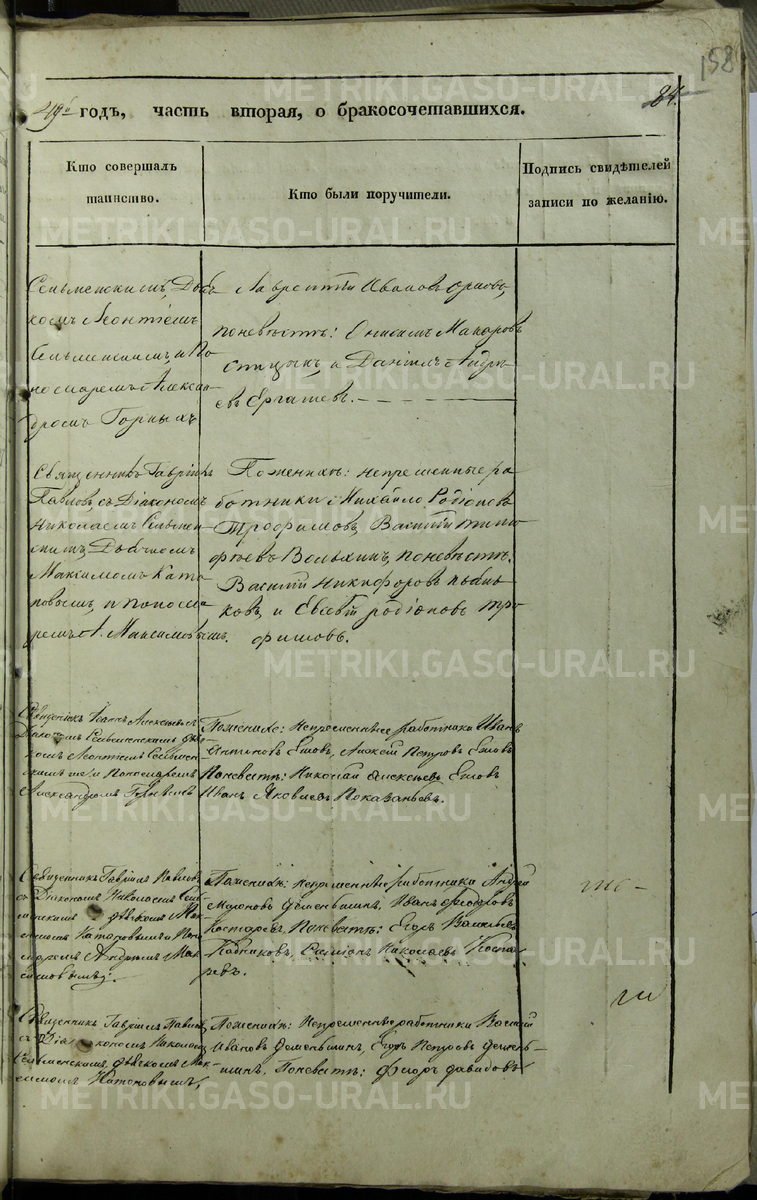 158
84.
49й годъ, часть вторая, о бракосочетавшихся.
Кто совершалъ таинство.
Кто были поручители.
Подпись свидѣтелей записи по желанію.
Сельменскимъ, Дьяч-
комъ Леонтіемъ
Сельменскимъ, и По-
номаремъ Алексан-
дромъ Горныхъ
Лаврентій Ивановъ
поневѣстѣ: Онисимъ Макаровъ
и Даніилъ Андре-
евъ Ергашевъ.
Священникъ Гавріилъ
Павловъ, съ Діакономъ
Николаемъ Сельмен-
скимъ, Дьячкомъ
Максимомъ Като-
ковымъ, и понома-
ремъ А. Максимовымъ.
Поженихѣ: непременные ра-
ботники Михайло Родіоновъ
Трофимовъ, Василій Тимо-
фѣевъ Волхинъ, поневѣстѣ:
Василій Никифоровъ
ковъ, и Евсевій Родіоновъ Тро-
фимовъ.
Священникъ Іоаннъ Алексѣевъ съ
Діакономъ Сельменскимъ Дьяч-
комъ Леонтіемъ Сельмен-
скимъ и Пономаремъ
Александромъ
Поженихѣ: Непременные работники Иванъ
Антиповъ Ежовъ, Алексѣй Петровъ Ежовъ
Поневестѣ: Николай Алексѣевъ Ежовъ
Иванъ Яковлевъ Показаньевъ.
Священникъ Гавріилъ Павловъ
съ Діакономъ Николаемъ Сель-
менскимъ Дьячкомъ Мак-
симомъ Катоковымъ и Поно-
маремъ Андреемъ Мак-
симовымъ.
Поженихѣ: непременные работники Андрей
Мироновъ Деменьшинъ, Иванъ Федоровъ
Костаревъ, Поневѣстѣ: Егоръ
Симіонъ Николаевъ Коста-
ревъ.
Священникъ Гавріилъ Павловъ
съ Діакономъ Николаемъ
Сельменскимъ, Дьячкомъ Мак-
симомъ Катоковымъ,
Поженихѣ: Непременные работники Василій
Ивановъ Деменьшинъ, Егоръ Петровъ Демень-
шинъ. Поневестѣ: Федоръ Давидовъ
METRIKI.GASO-URAL.RU